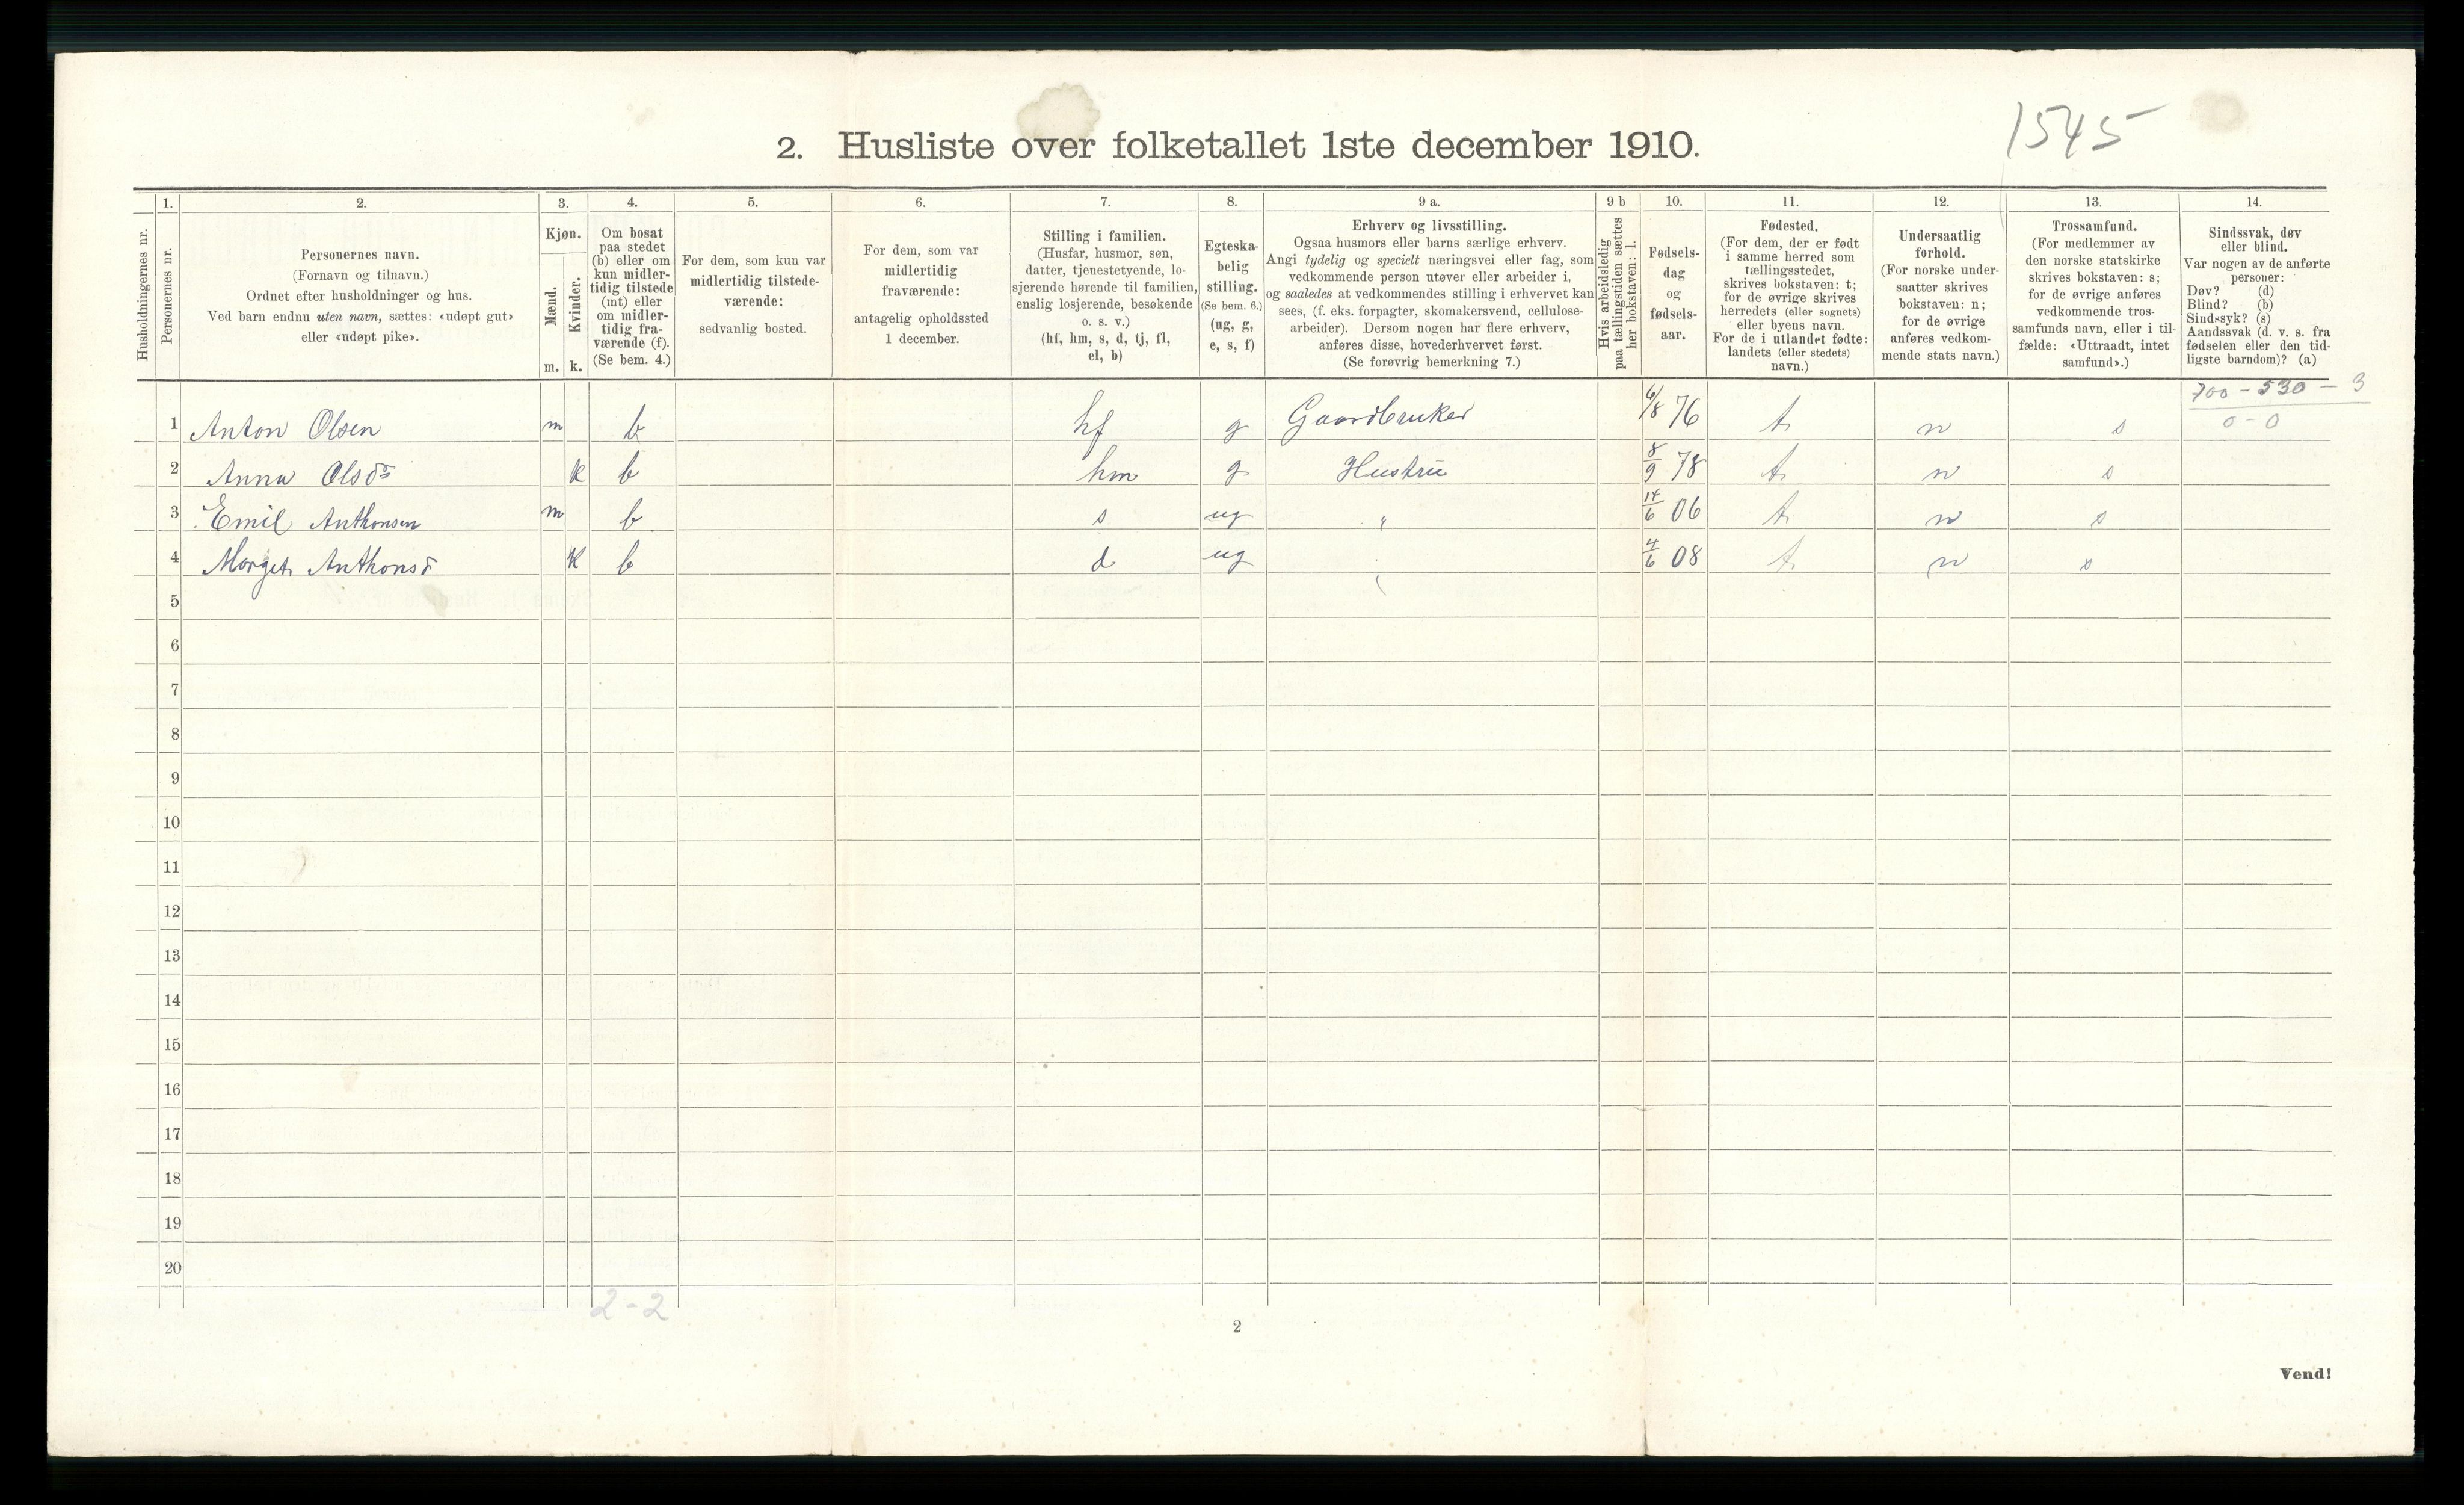 1545
2. Husliste over folketallet 1ste december 1910.
1. 2. 3. 4. 5. 6. 7. 8. 9 a. 9 b 10. 11. 12. 13. 14.
Husholdningernes nr.
Personernes nr.
Personernes navn.
(Fornavn og tilnavn.)
Ordnet efter husholdninger og hus.
Ved barn endnu uten navn, sættes: «udøpt gut»
eller «udøpt pike».
Kjøn.
Mænd.
Kvinder.
m. k.
Om bosat
paa stedet
(b) eller om
kun midler-
tidig tilstede
(mt) eller
om midler-
tidig fra-
værende (f).
(Se bem. 4.)
For dem, som kun var
midlertidig tilstede-
værende:
sedvanlig bosted.
For dem, som var
midlertidig
fraværende:
antagelig opholdssted
1 december.
Stilling i familien.
(Husfar, husmor, søn,
datter, tjenestetyende, lo-
sjerende hørende til familien,
enslig losjerende, besøkende
o. s. v.)
(hf, hm, s, d, tj, fl,
el, b)
Egteska-
belig
stilling.
(Se bem. 6.)
(ug, g,
e, s, f)
Erhverv og livsstilling.
Ogsaa husmors eller barns særlige erhverv.
Angi tydelig og specielt næringsvei eller fag, som
vedkommende person utøver eller arbeider i,
og saaledes at vedkommendes stilling i erhvervet kan
sees, (f. eks. forpagter, skomakersvend, cellulose-
arbeider). Dersom nogen har flere erhverv,
anføres disse, hovederhvervet først.
(Se forøvrig bemerkning 7.)
Hvis arbeidsledig
paa tællingstiden sættes
her bokstaven: l.
Fødsels-
dag
og
fødsels-
aar.
Fødested.
(For dem, der er født
i samme herred som
tællingsstedet,
skrives bokstaven: t;
for de øvrige skrives
herredets (eller sognets)
eller byens navn.
For de i utlandet fødte:
landets (eller stedets)
navn.)
Undersaatlig
forhold.
(For norske under-
saatter skrives
bokstaven: n;
for de øvrige
anføres vedkom-
mende stats navn.)
Trossamfund.
(For medlemmer av
den norske statskirke
skrives bokstaven: s;
for de øvrige anføres
vedkommende tros-
samfunds navn, eller i til-
fælde: «Uttraadt, intet
samfund».)
Sindssvak, døv
eller blind.
Var nogen av de anførte
personer:
Døv? (d)
Blind? (b)
Sindssyk? (s)
Aandssvak (d. v. s. fra
fødselen eller den tid-
ligste barndom)? (a)
700 - 530 - 3
0 - 0
1 Anton Olsen m b hf g Gaardbruker 6/8 76 t n s
2 Anna Olsdr k b hm g Hustru 8/9 78 t n s
3 Emil Anthonsen m b s ug " 14/6 06 t n s
4 Marget Anthonsd k b d ug 4/6 08 t n s
5
6
7
8
9
10
11
12
13
14
15
16
17
18
19
20
2-2
2
Vend!